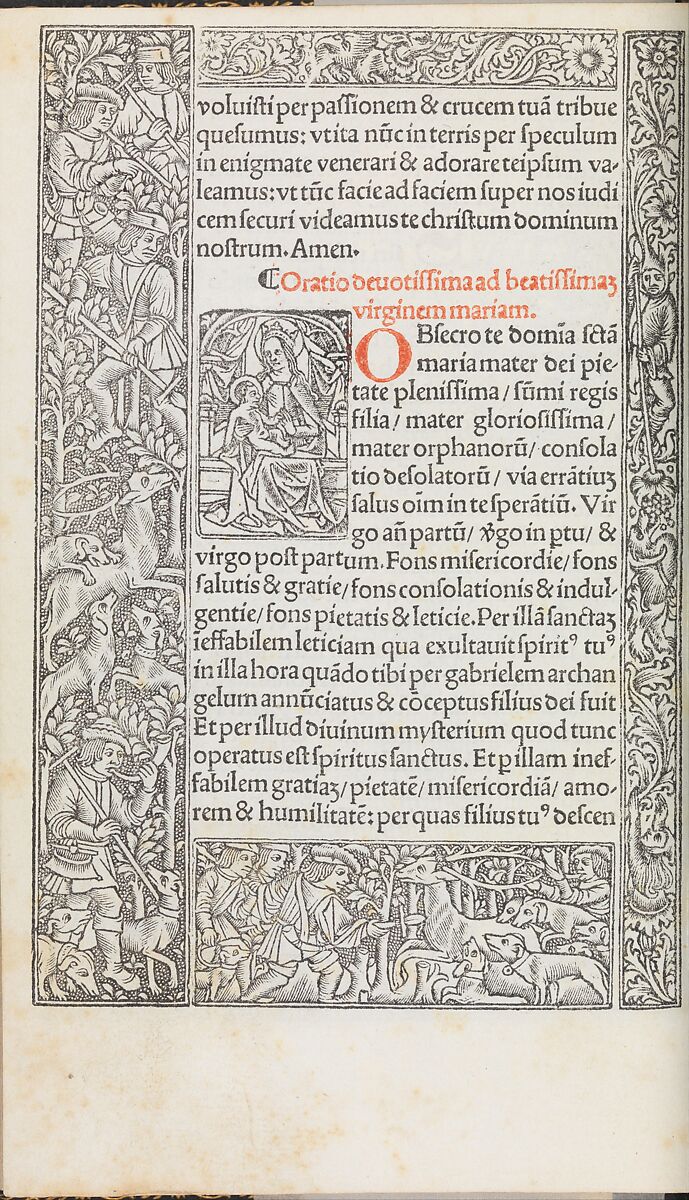 voluisti per passionem & crucem tuā tribue
quesumus: vt ita nūc in terris per speculum
in enigmate venerari & adorare teipsum va-
leamus: vt tūc facie ad faciem super nos iudi
cem securi videamus te christum dominum
nostrum. Amen.
⸿Oratio deuotissima ad beatissimaꝫ
virginem mariam.
OBsecro te domīa sctā
maria mater dei pie-
tate plenissima / sūmi regis
filia / mater gloriosissima /
mater orphanorū / consola
tio desolatorū / via errātiuꝫ
salus oīm in te sperātiū. Vir
go añ partū / v̾go in ptu / &
virgo post partum. Fons misericordie / fons
salutis & gratie / fons consolationis & indul-
gentie / fons pietatis & leticie. Per illā sanctaꝫ
īeffabilem leticiam qua exultauit spiritꝰ tuꝰ
in illa hora quādo tibi per gabrielem archan
gelum annūciatus & cōceptus filius dei fuit
Et per illud diuinum mysterium quod tunc
operatus est spiritus sanctus. Et ꝑ illam inef-
fabilem gratiaꝫ / pietatē / misericordiā / amo-
rem & humilitatē: per quas filius tuꝰ descen